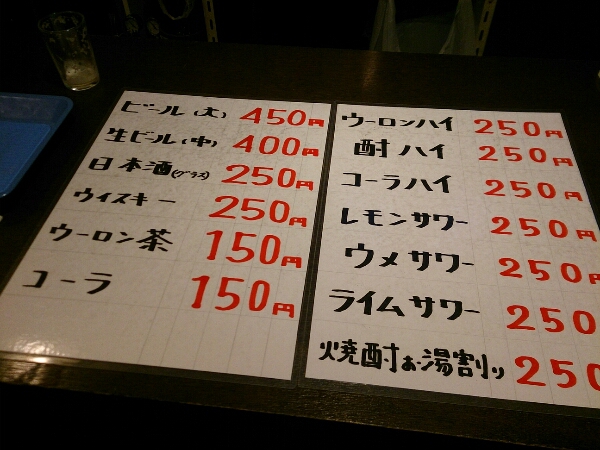 ビール(大) 450円
生ビール(中) 400円
日本酒(グラス) 250円
ウイスキー 250円
ウーロン茶 150円
コーラ 150円
ウーロンハイ 250円
酎ハイ 250円
コーラハイ 250円
レモンサワー 250円
ウメサワー 250円
ライムサワー 250円
焼酎お湯割り 250